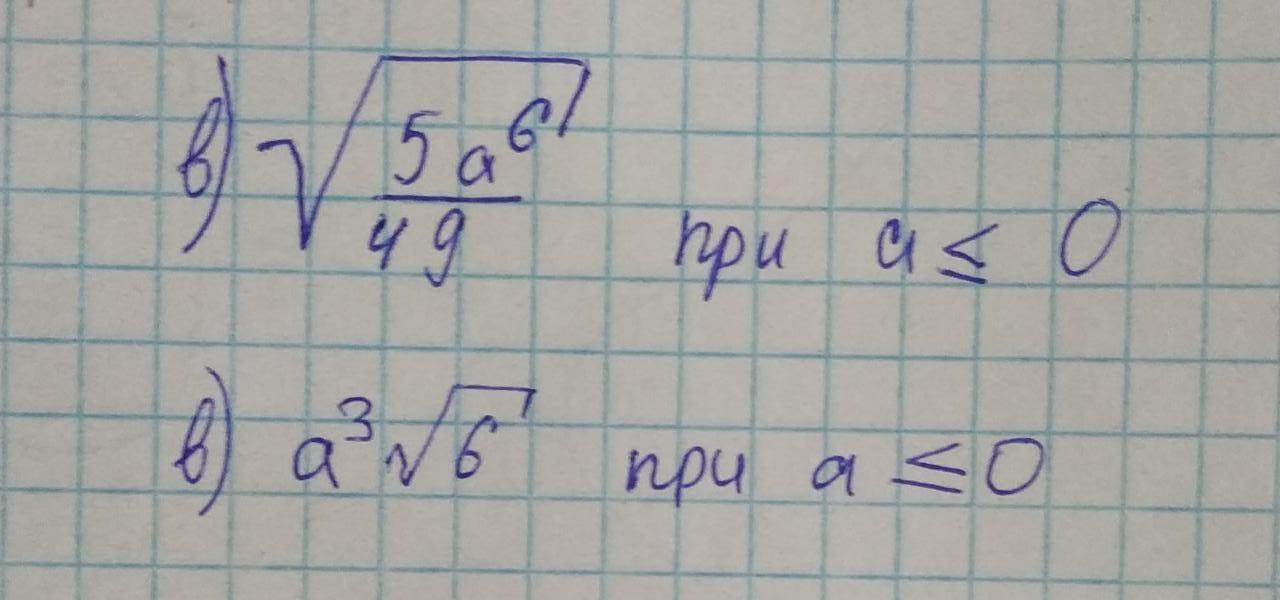 в) √(5a⁶/49) при a ≤ 0
в) a³√6 при a ≤ 0